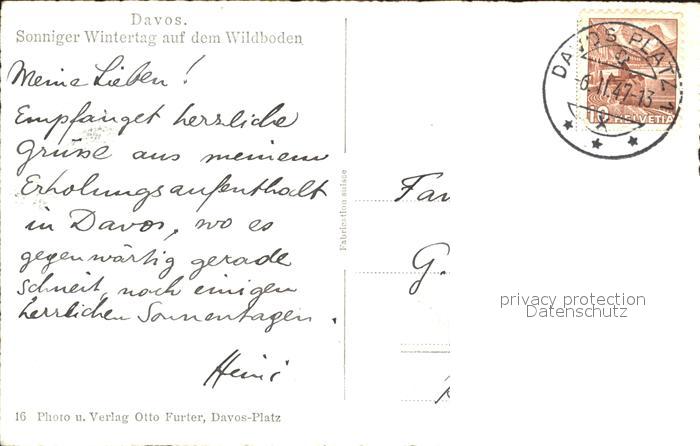 Davos.
Sonniger Wintertag auf dem Wildboden
Meine Lieben!
Empfanget herzliche
Grüsse aus meinem
Erholungsaufenthalt
in Davos, wo es
gegenwärtig gerade
schneit, nach einigen
herrlichen Sonnentagen.
Heini
16 Photo u. Verlag Otto Furter, Davos-Platz
Fabrication suisse
DAVOS PLATZ 1
-6.II.47-13
10 HELVETIA
Fam
G.
privacy protection
Datenschutz